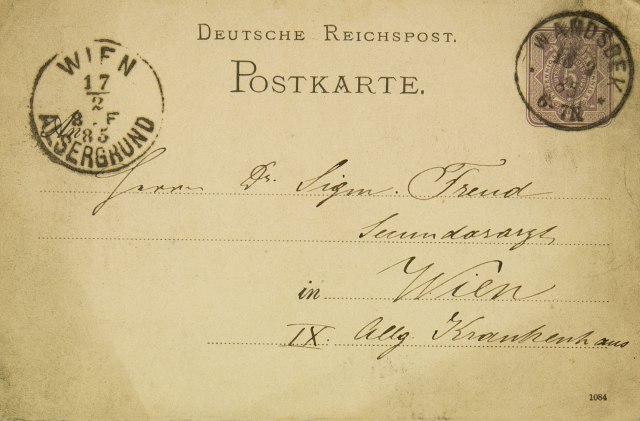 DEUTSCHE REICHSPOST.
POSTKARTE.
WIEN
17
2
8 F
85
ALSERGRUND
WANDSBEK
An
Herrn Dr. Sigm. Freud
Secundararzt
in Wien
IX. Allg Krankenhaus
1084